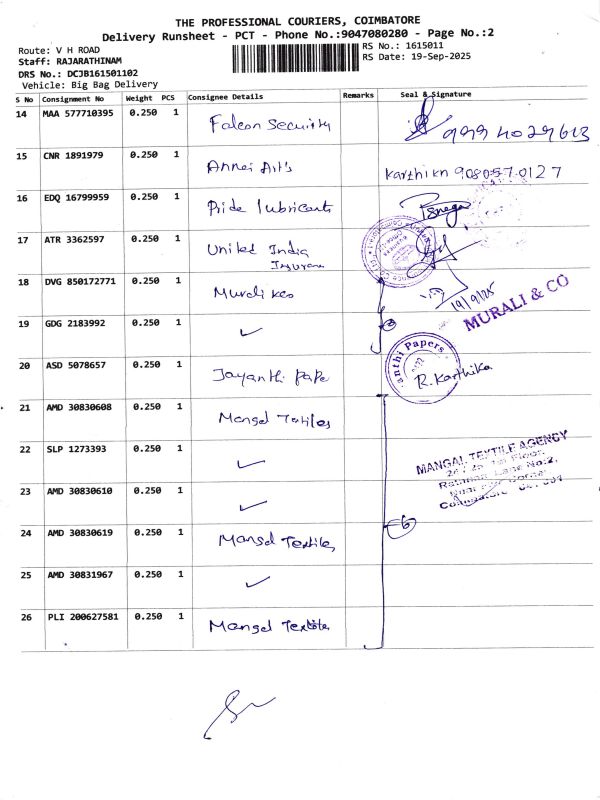 THE PROFESSIONAL COURIERS, COIMBATORE
Delivery Runsheet - PCT - Phone No.:9047080280 - Page No.:2
Route: V H ROAD
RS No.: 1615011
Staff: RAJARATHINAM
RS Date: 19-Sep-2025
DRS No.: DCJB161501102
Vehicle: Big Bag Delivery
S No Consignment No Weight PCS Consignee Details Remarks Seal & Signature
14 MAA 577710395 0.250 1 Falcon Security
15 CNR 1891979 0.250 1 Annai Art's Karthikn 9080570127
16 EDQ 16799959 0.250 1 Pride lubricants
17 ATR 3362597 0.250 1 United India
Insurance
18 DVG 850172771 0.250 1 Murali &co 19/9/25
MURALI & CO
19 GDG 2183992 0.250 1 ✓
20 ASD 5078657 0.250 1 Jayanthi Pape anthi Papers
R. Karthika
21 AMD 30830608 0.250 1 Mangal Textiles
22 SLP 1273393 0.250 1 ✓ MANGAL TEXTILE AGENCY
23 AMD 30830610 0.250 1 ✓
24 AMD 30830619 0.250 1 Mangal Textiles 6
25 AMD 30831967 0.250 1 ✓
26 PLI 200627581 0.250 1 Mangal Textile